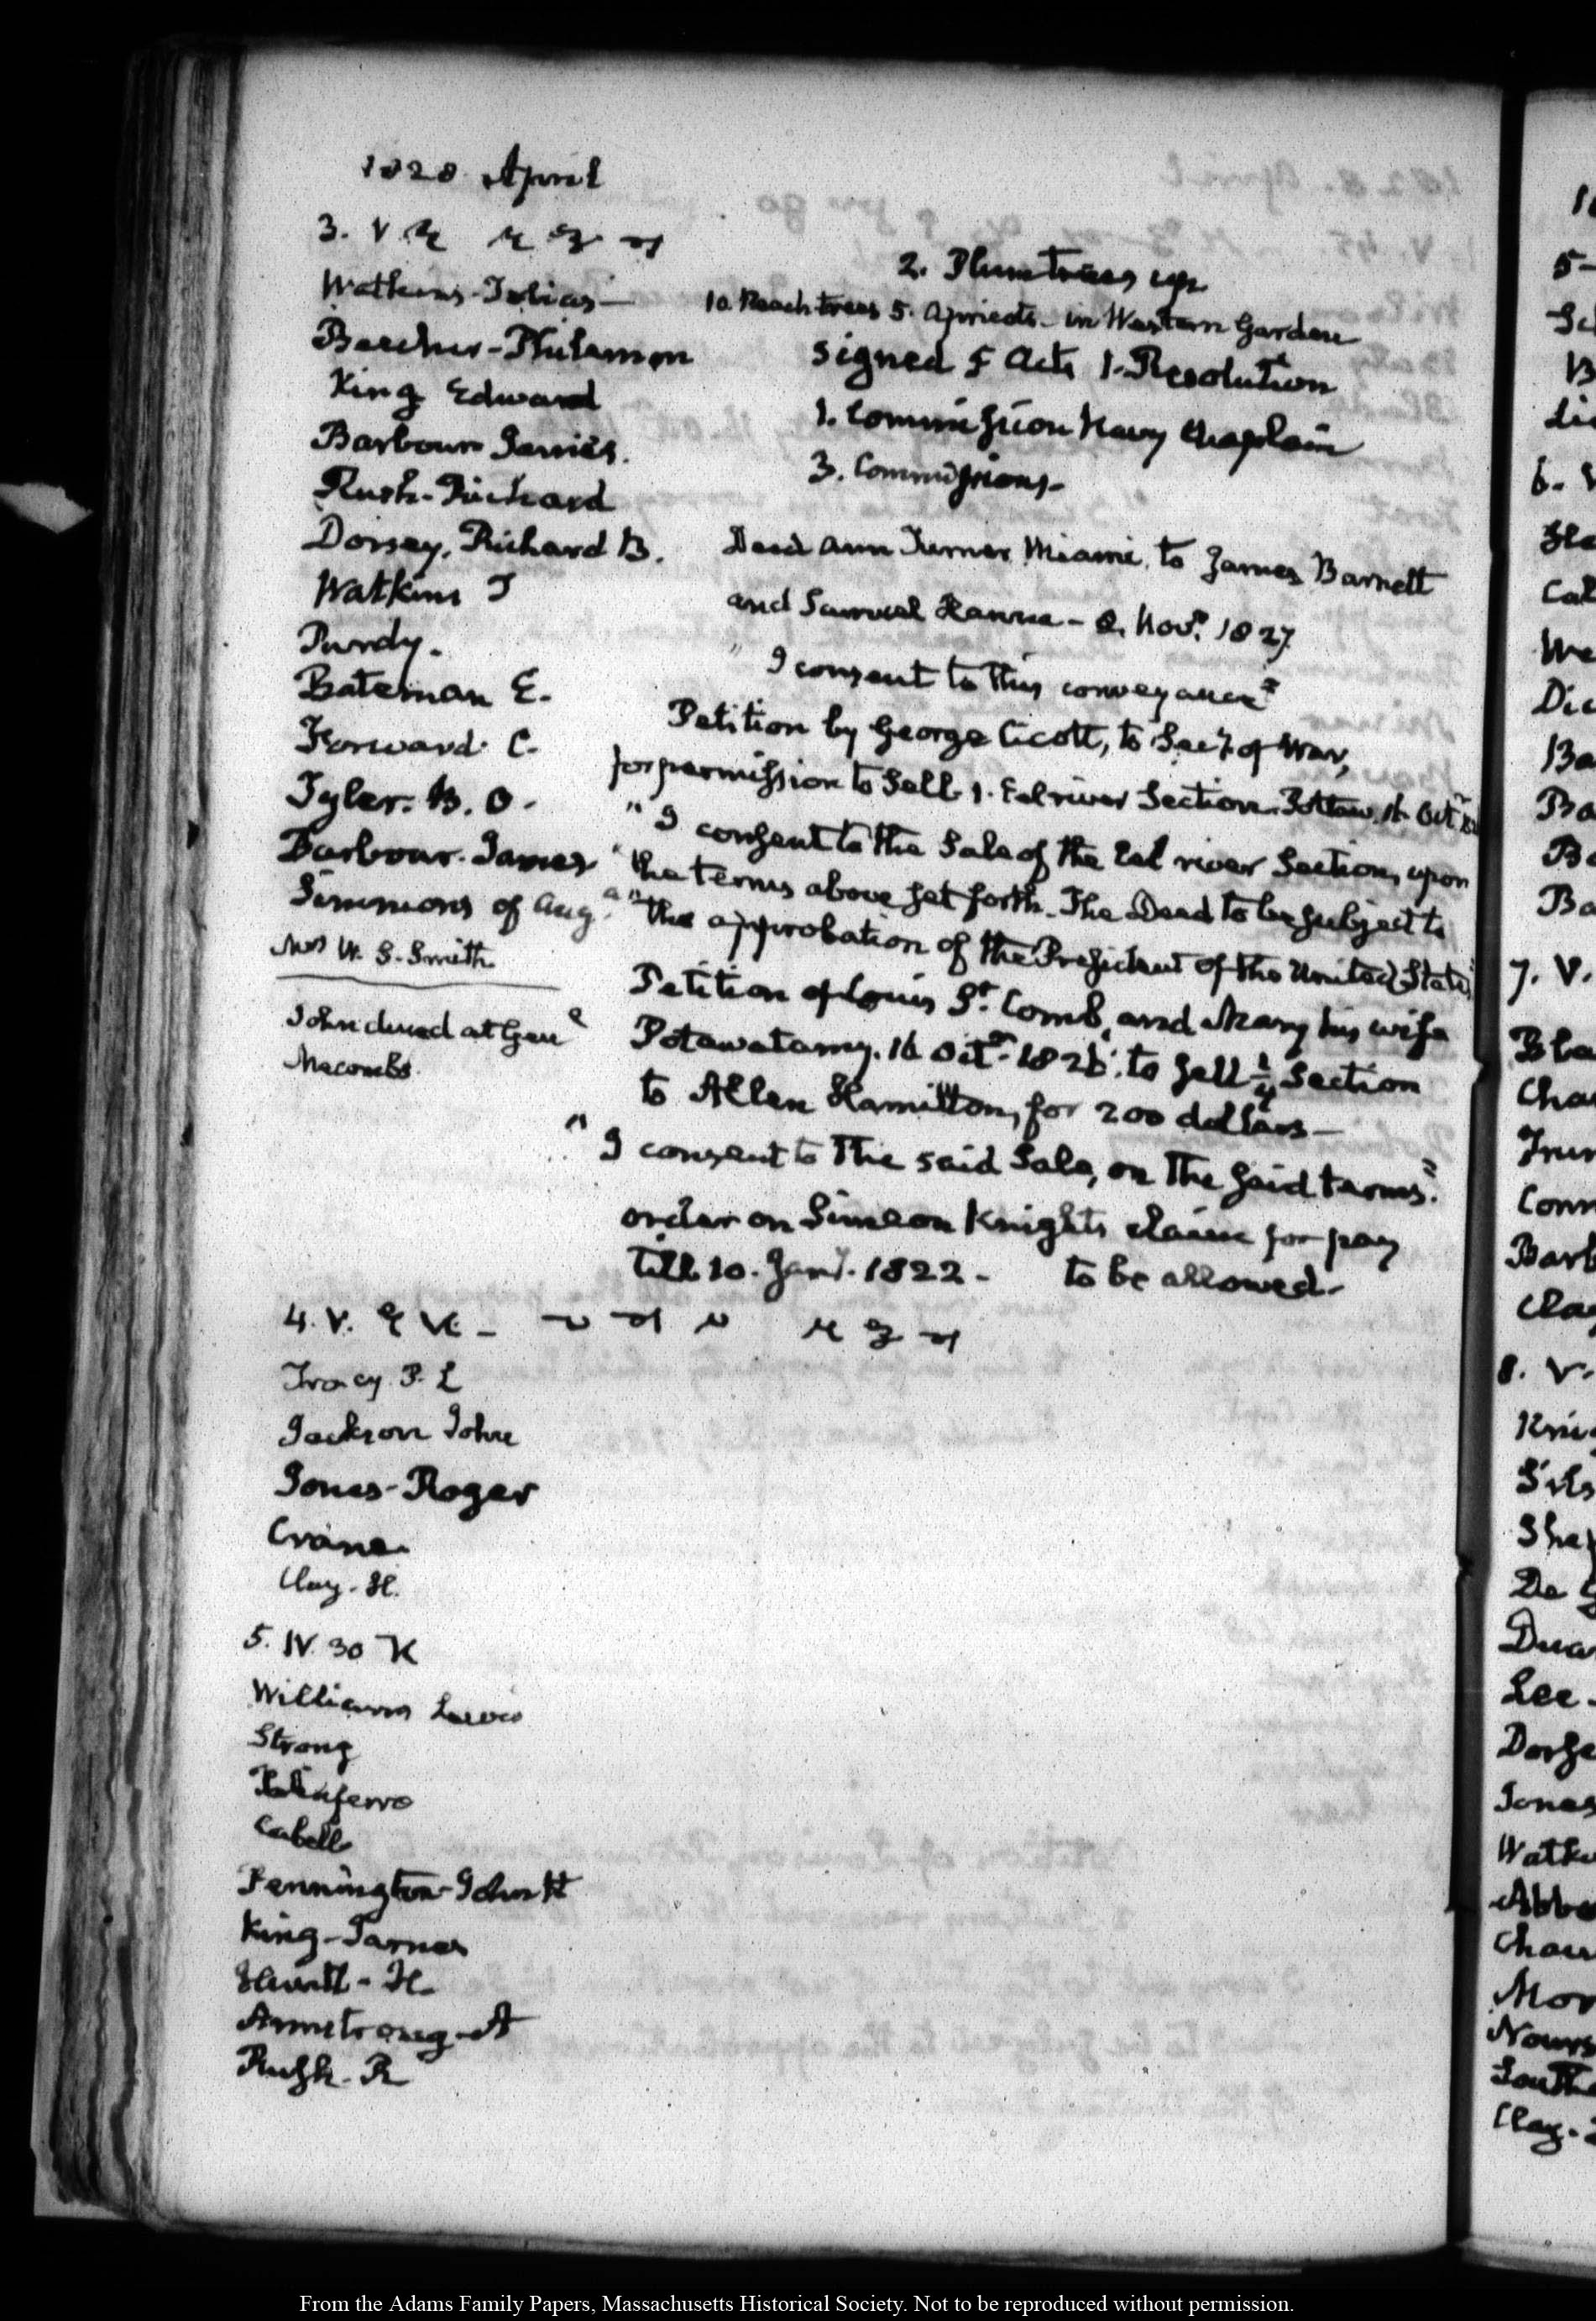 1828 April
3. V.
Watkins-Tobias-
Beecher-Philemon
King Edward
Barbour James.
Rush-Richard
Dorsey, Richard B.
Watkins T
Purdy.
Bateman E.
Forward C.
Tyler. B. O.
Barbour. James
Simmons of Aug.a
Mrs W. S. Smith
John dined at Genl
Macombs.
2. Plumtrees up
10. Peach trees 5. Apricots- in Western Garden
signed 5 Acts 1. Resolution
1. Commission Navy Chaplain
3. Commissions-
Deed Ann Turner Miami, to James Barnett
and Samuel Hanna- 8. Novr. 1827.
"I consent to this conveyance"
Petition by George Cicott, to Secy. of War,
for permission to sell 1. Eel river Section. Pottaw. 16 Octr
"I consent to the Sale of the Eel river Section, upon
"the terms above set forth. The Deed to be subject to
"the approbation of the President of the United States"
Petition of Louis St. Comb, and Mary his wife
Potawatamy. 16 Octr. 1826. to sell 1/4 Section
to Allen Hamilton, for 200 dollars-
"I consent to the said Sale, on the said terms".
order on Simeon Knights claim for pay
till 10. Jany. 1822. - to be allowed-
4. V.
Tracy P. L
Jackson John
Jones-Roger
Crane
Clay. H.
5. IV. 30
Williams Lewis
Strong
Taliaferro
Cabell
Pennington-John H
King-James
Hewitt- H.
Armstrong-A
Rush. R
From the Adams Family Papers, Massachusetts Historical Society. Not to be reproduced without permission.